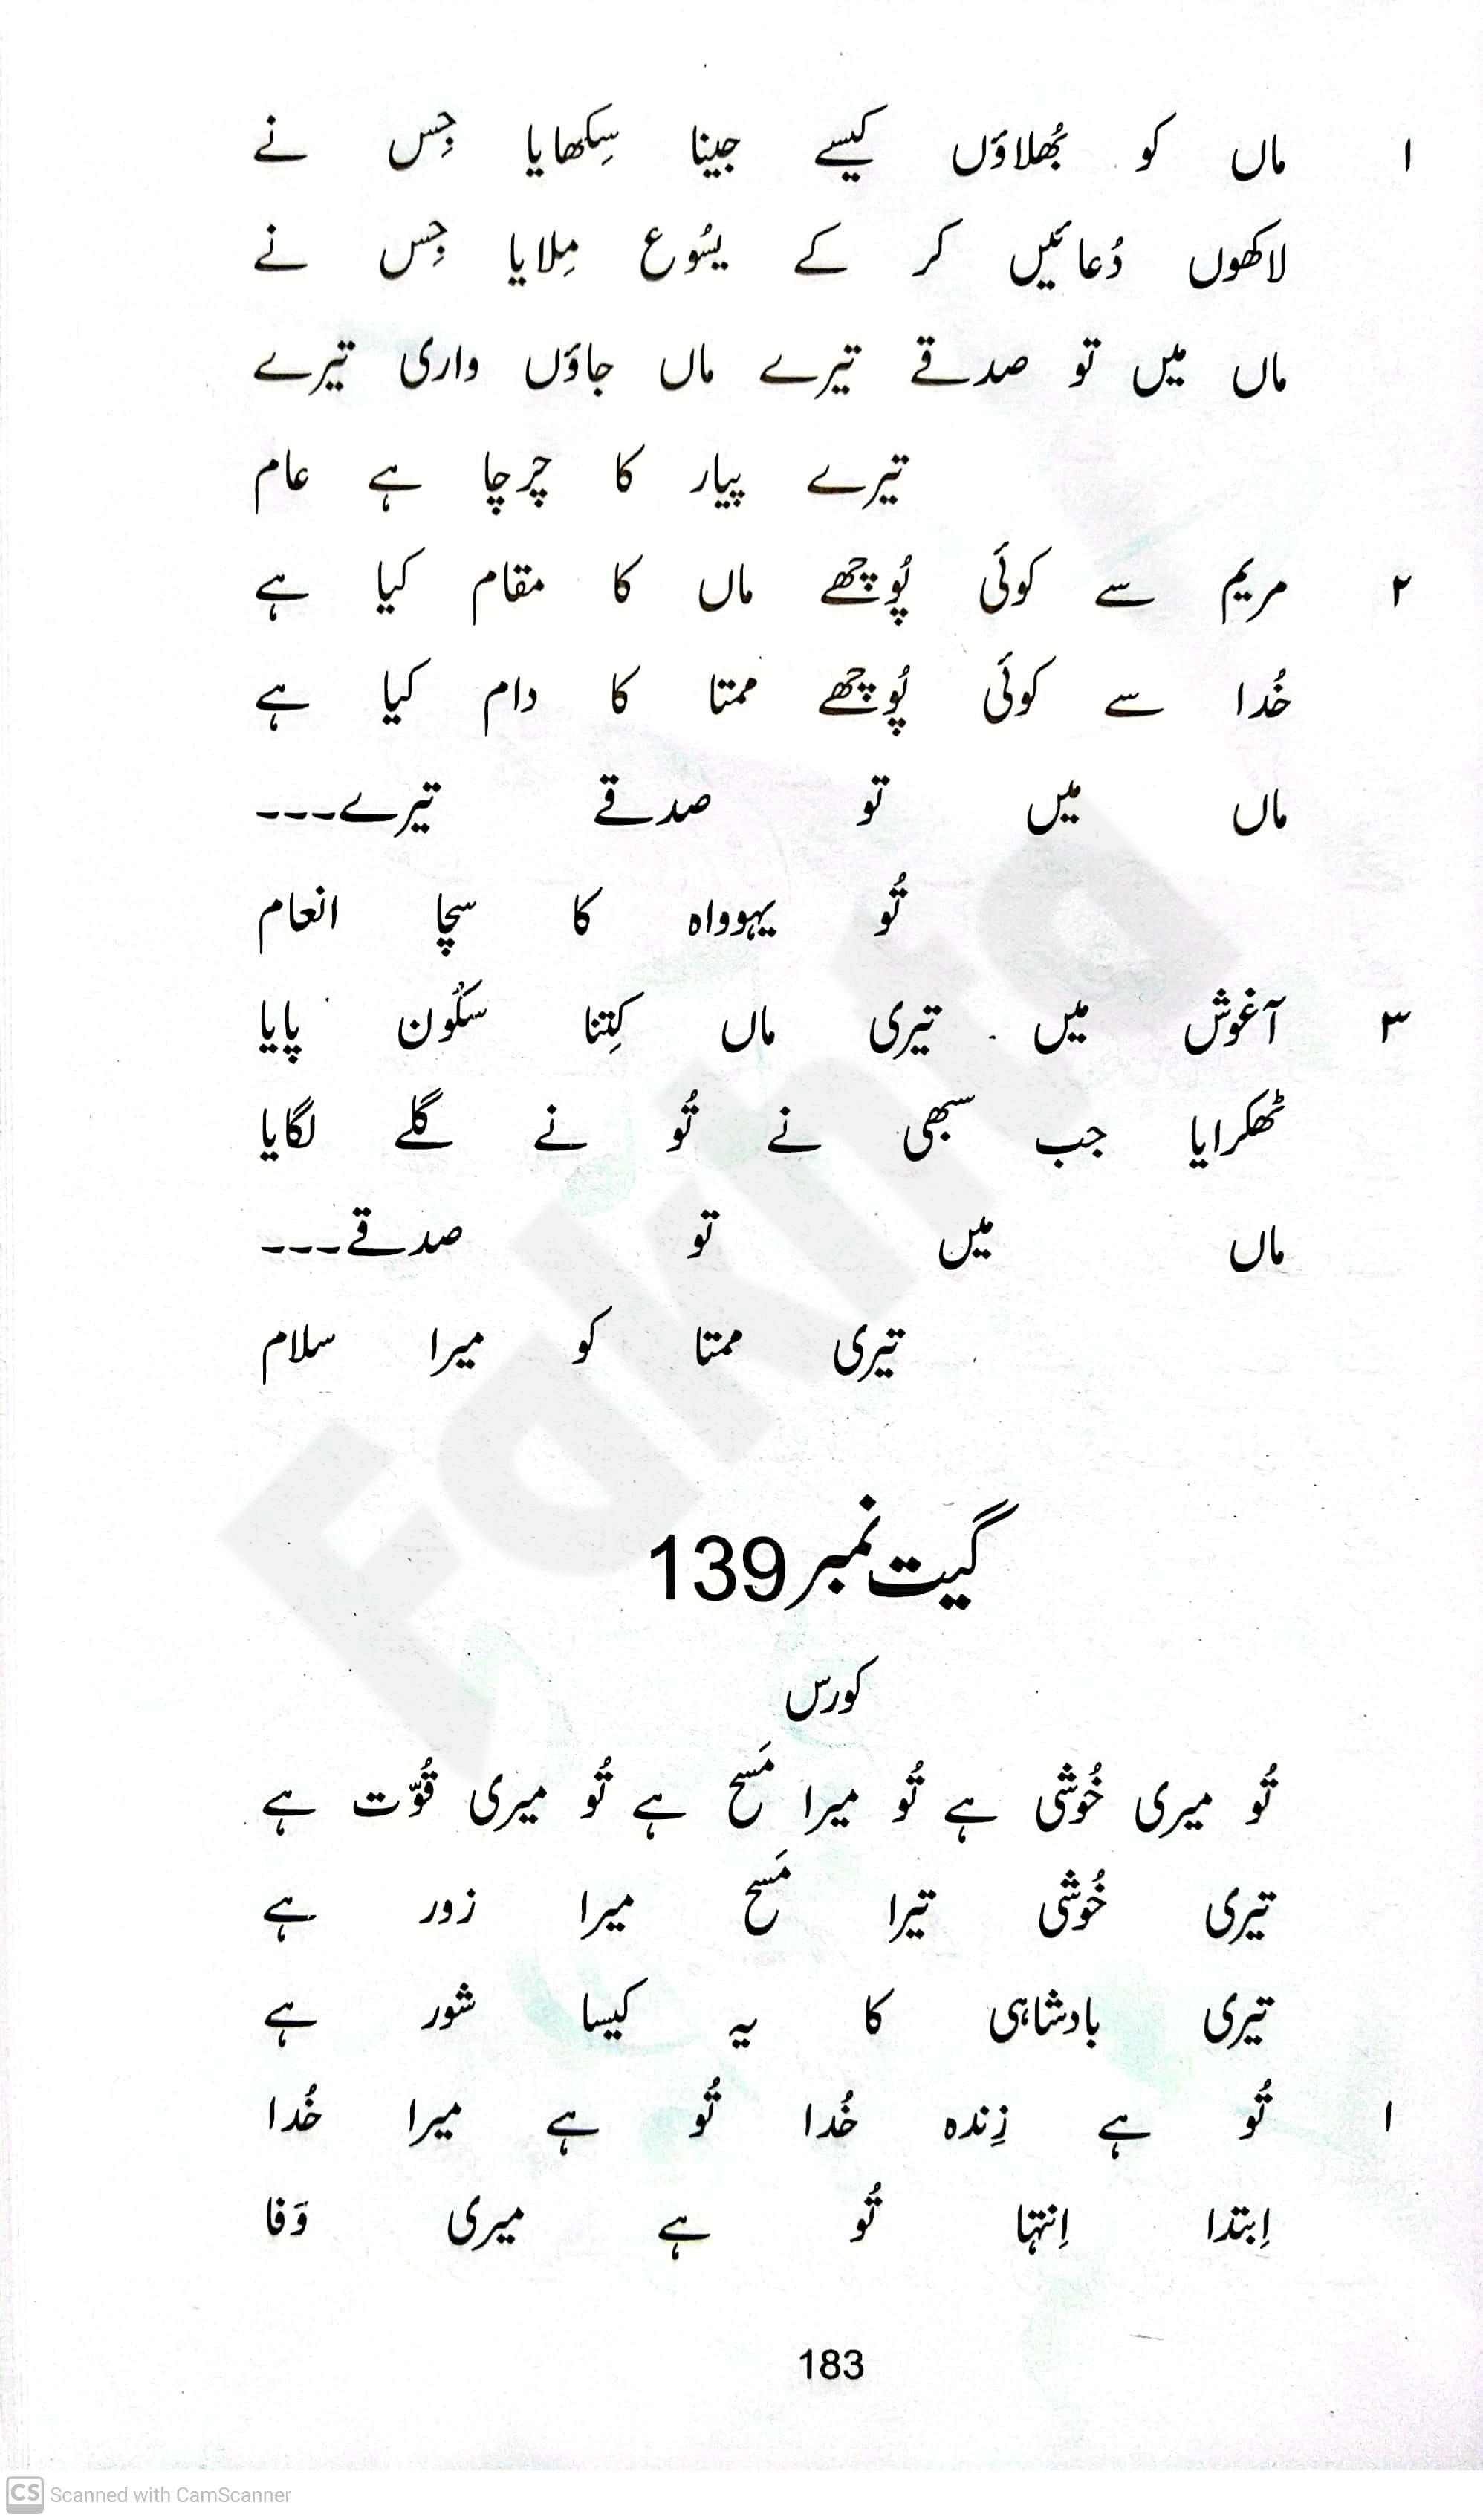 ۱ ماں کو بُھلاؤں کیسے جینا سِکھایا جِس نے
لاکھوں دُعائیں کر کے یسُوع مِلایا جِس نے
ماں میں تو صدقے تیرے ماں جاؤں واری تیرے
تیرے پیار کا چرچا ہے عام
۲ مریم سے کوئی پُوچھے ماں کا مقام کیا ہے
خُدا سے کوئی پُوچھے ممتا کا دام کیا ہے
ماں میں تو صدقے تیرے۔۔۔
تُو یہوواہ کا سچا انعام
۳ آغوش میں تیری ماں کِتنا سکُون پایا
ٹھکرایا جب سبھی نے تُو نے گلے لگایا
ماں میں تو صدقے۔۔۔
تیری ممتا کو میرا سلام
گیت نمبر 139
کورس
تُو میری خُوشی ہے تُو میرا مَسح ہے تُو میری قُوّت ہے
تیری خُوشی تیرا مَسح میرا زور ہے
تیری بادشاہی کا یہ کیسا شور ہے
۱ تُو ہے زِندہ خُدا تُو ہے میرا خُدا
اِبتدا اِنتہا تُو ہے میری وَفا
183
Fakhta
CS Scanned with CamScanner